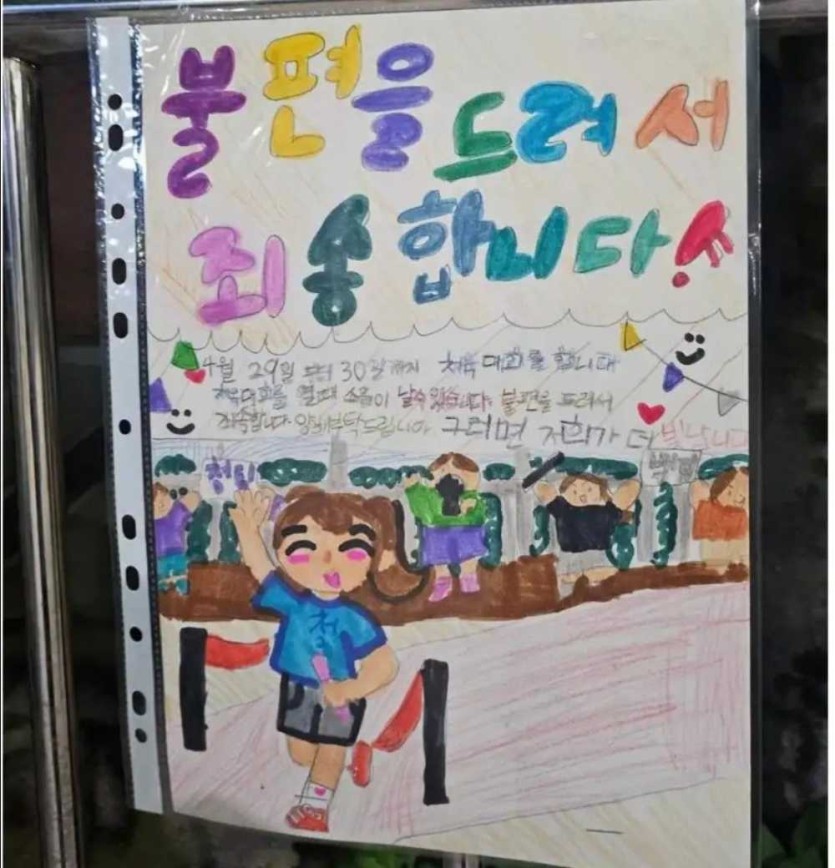 불편을 드려서
죄송합니다!
4월 29일 부터 30일까지 체육대회를 합니다
체육대회를 열 때 소음이 날 수 있습니다. 불편을 드려서
죄송합니다. 양해부탁드립니다 그러면 저희가 더 빛납니다
청팀
백팀
청